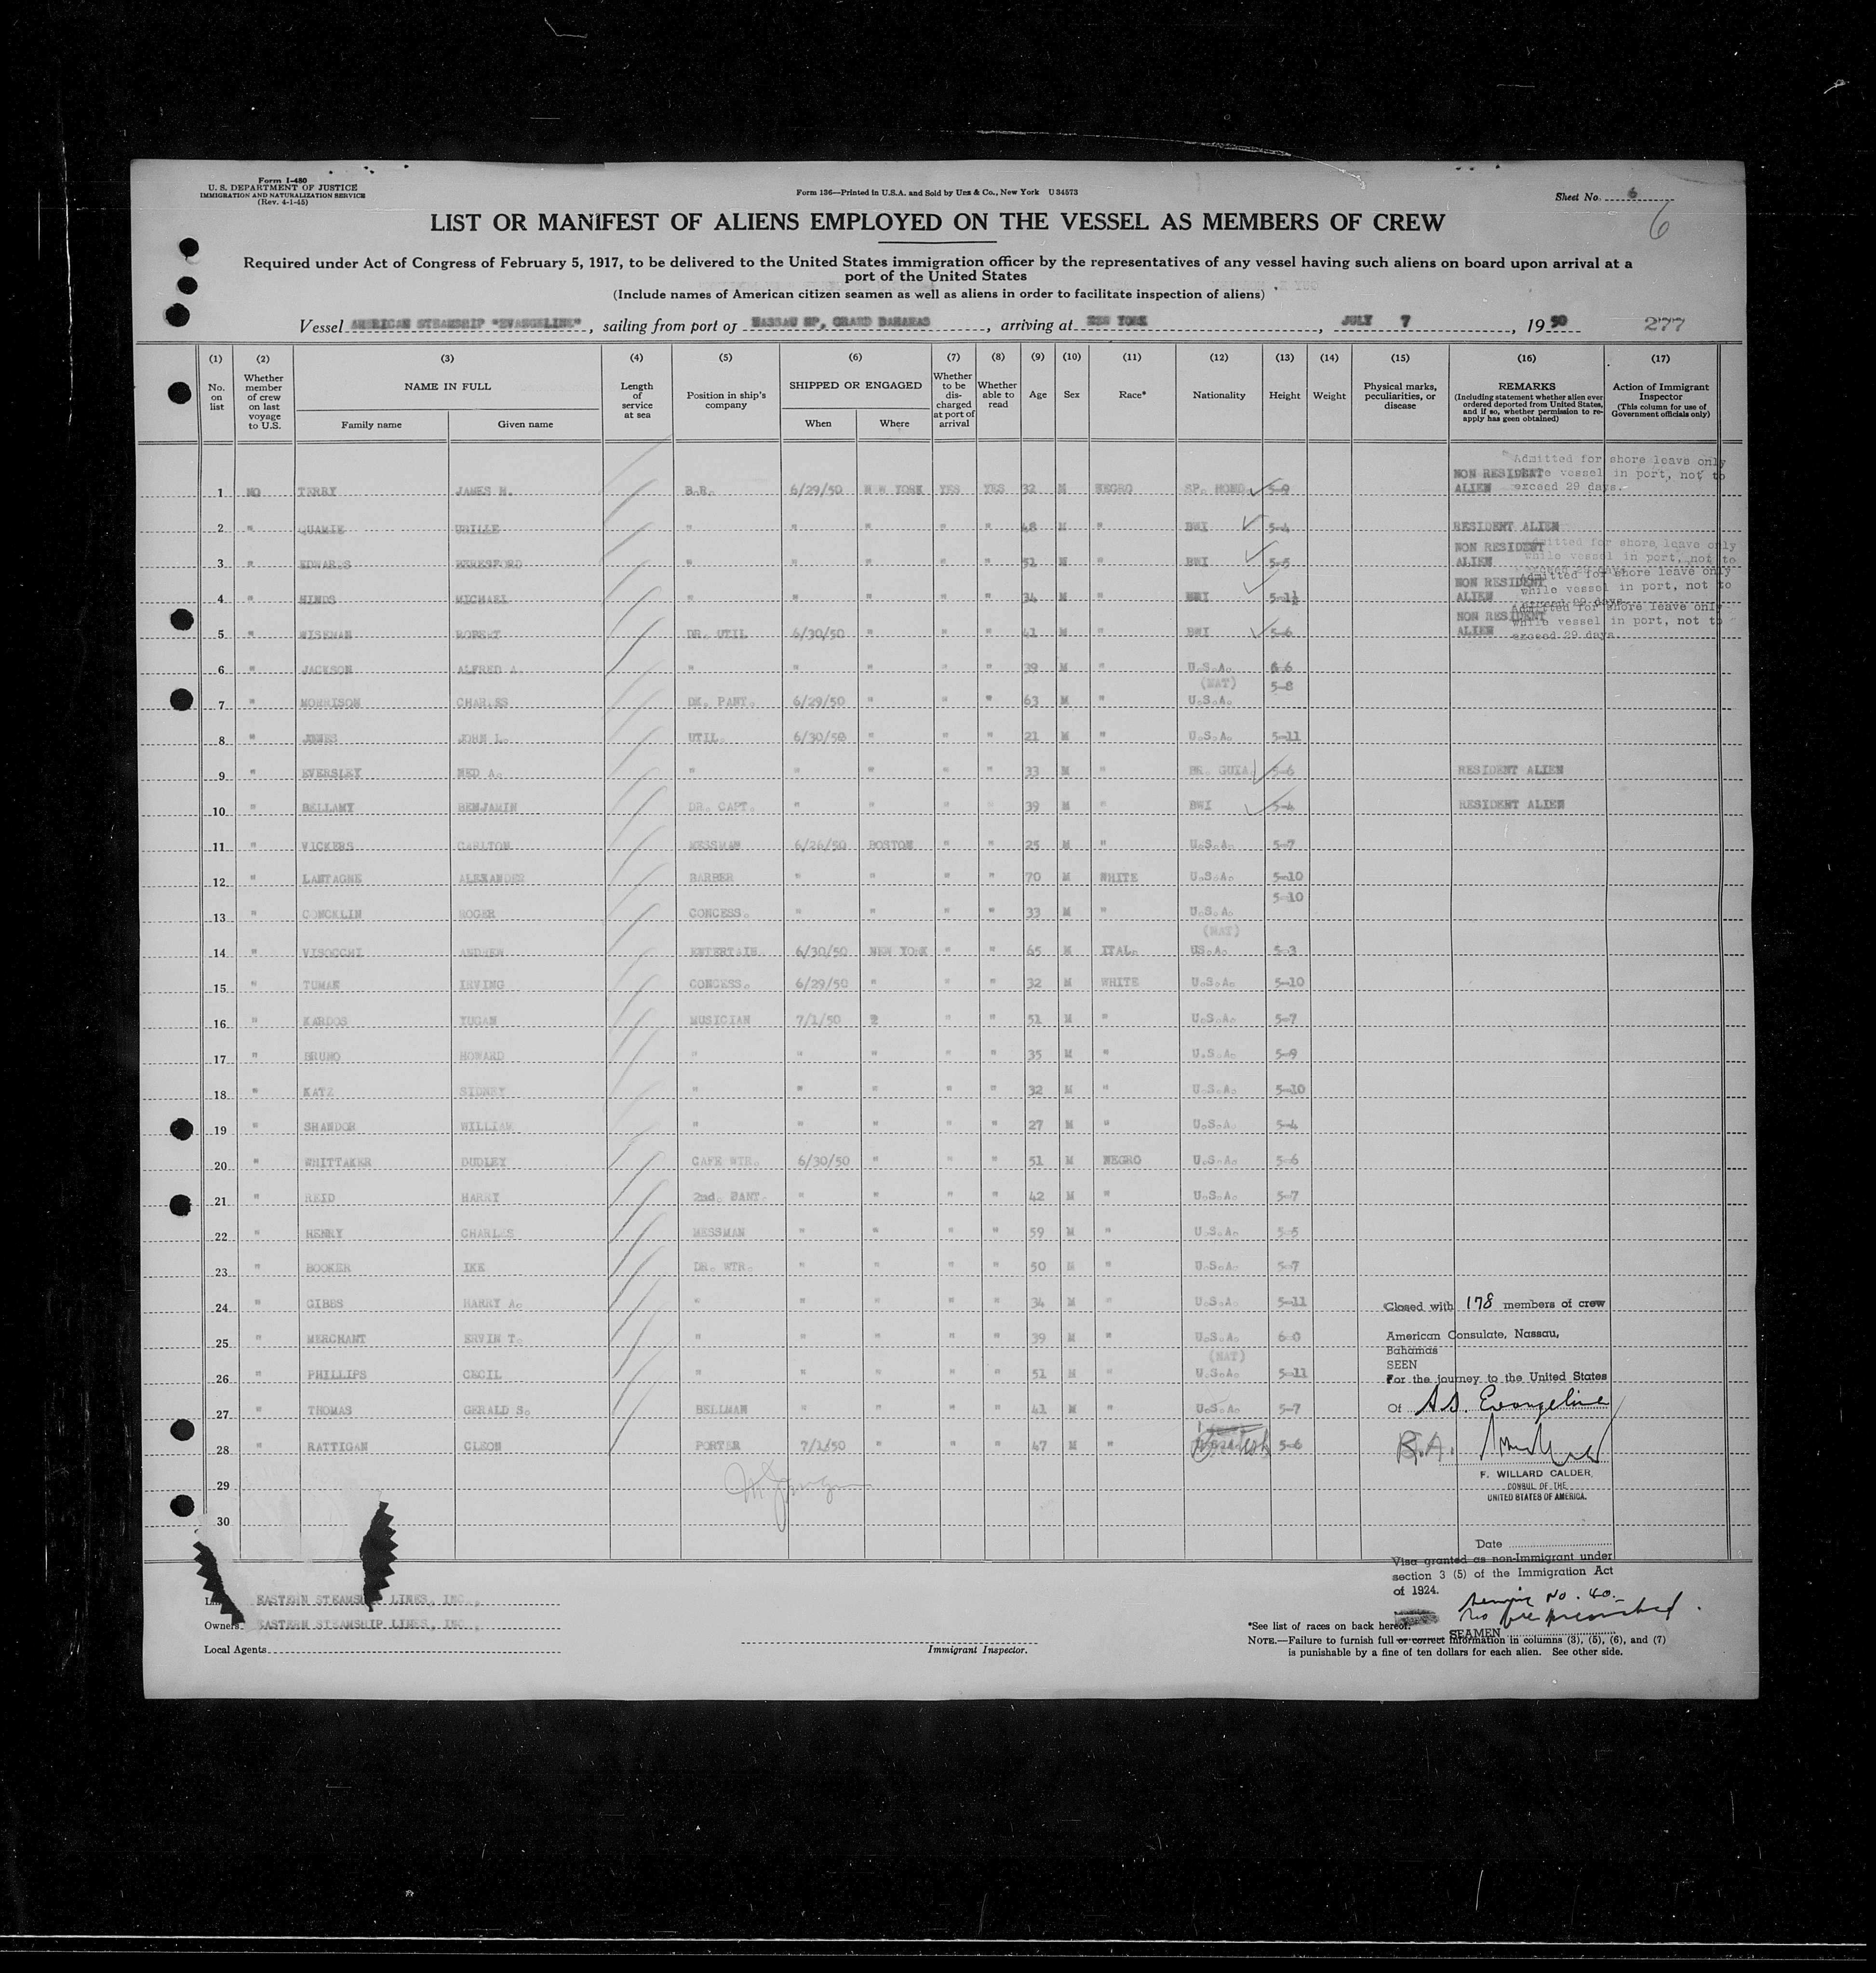 Form I-480
U. S. DEPARTMENT OF JUSTICE
IMMIGRATION AND NATURALIZATION SERVICE
(Rev. 4-1-45)
Form 136—Printed in U.S.A. and Sold by Unz & Co., New York U 34573
Sheet No. 6
6
LIST OR MANIFEST OF ALIENS EMPLOYED ON THE VESSEL AS MEMBERS OF CREW
Required under Act of Congress of February 5, 1917, to be delivered to the United States immigration officer by the representatives of any vessel having such aliens on board upon arrival at a
port of the United States
(Include names of American citizen seamen as well as aliens in order to facilitate inspection of aliens)
Vessel AMERICAN STEAMSHIP "EVANGELINE", sailing from port of NASSAU NP, GRAND BAHAMAS, arriving at NEW YORK, JULY 7, 1950 277
(1) (2) (3) (4) (5) (6) (7) (8) (9) (10) (11) (12) (13) (14) (15) (16) (17)
No. on list
Whether member of crew on last voyage to U.S.
NAME IN FULL
Family name Given name
Length of service at sea
Position in ship's company
SHIPPED OR ENGAGED
When Where
Whether to be discharged at port of arrival
Whether able to read
Age
Sex
Race*
Nationality
Height
Weight
Physical marks, peculiarities, or disease
REMARKS
(Including statement whether alien ever ordered deported from United States, and if so, whether permission to re-apply has been obtained)
Action of Immigrant Inspector
(This column for use of Government officials only)
1 NO TERRY JAMES H. B.R. 6/29/50 NEW YORK YES YES 32 M NEGRO SP. HOND. 5-9 NON RESIDENT ALIEN Admitted for shore leave only vessel in port, not to exceed 29 days.
2 " QUAMIE URILLE " " " " " 48 M " BWI 5-4 RESIDENT ALIEN
3 " EDWARDS BERESFORD " " " " " 51 M " BWI 5-5 NON RESIDENT ALIEN Admitted for shore leave only while vessel in port, not to
4 " HINDS MICHAEL " " " " " 34 M " BWI 5-11½ NON RESIDENT ALIEN Admitted for shore leave only while vessel in port, not to exceed 29 days
5 " WISEMAN ROBERT DR. UTIL 6/30/50 " " " 41 M " BWI 5-6 NON RESIDENT ALIEN Admitted for shore leave only while vessel in port, not to exceed 29 days
6 " JACKSON ALFRED A. " " " " " 39 M " U.S.A. 6-6
7 " MORRISON CHARLES DK. PANY. 6/29/50 " " " 63 M " (NAT) U.S.A. 5-8
8 " JONES JOHN L. UTIL. 6/30/50 " " " 21 M " U.S.A. 5-11
9 " EVERSLEY NED A. " " " " " 33 M " BR. GUIA 5-6 RESIDENT ALIEN
10 " BELLAMY BENJAMIN DR. CAPT. " " " " 39 M " BWI 5-4 RESIDENT ALIEN
11 " VICKERS CARLTON MESSMAN 6/26/50 BOSTON " " 25 M " U.S.A. 5-7
12 " LANTAGNE ALEXANDER BARBER " " " " 70 M WHITE U.S.A. 5-10
13 " CONCKLIN ROGER CONCESS. " " " " 33 M " U.S.A. 5-10
14 " VISOCCHI ANDREW ENTERTAIN. 6/30/50 NEW YORK " " 65 M ITAL. (NAT) US.A. 5-3
15 " TUMAN IRVING CONCESS. 6/29/50 " " " 32 M WHITE U.S.A. 5-10
16 " KARDOS YUGAN MUSICIAN 7/1/50 " " " 51 M " U.S.A. 5-7
17 " BRUNO HOWARD " " " " " 35 M " U.S.A. 5-9
18 " KATZ SIDNEY " " " " " 32 M " U.S.A. 5-10
19 " SHANDOR WILLIAM " " " " " 27 M " U.S.A. 5-4
20 " WHITTAKER DUDLEY CAFE WTR. 6/30/50 " " " 51 M NEGRO U.S.A. 5-6
21 " REID HARRY 2nd. BANT. " " " " 42 M " U.S.A. 5-7
22 " HENRY CHARLES MESSMAN " " " " 59 M " U.S.A. 5-5
23 " BOOKER IKE DR. WTR. " " " " 50 M " U.S.A. 5-7
24 " GIBBS HARRY A. " " " " " 34 M " U.S.A. 5-11
25 " MERCHANT ERVIN T. " " " " " 39 M " U.S.A. 6-0
26 " PHILLIPS CECIL " " " " " 51 M " (NAT) U.S.A. 5-11
27 " THOMAS GERALD S. BELLMAN " " " " 41 M " U.S.A. 5-7
28 " RATTIGAN CLEON PORTER 7/1/50 " " " 47 M " British 5-6
29
30
Closed with 178 members of crew
American Consulate, Nassau,
Bahamas
SEEN
For the journey to the United States
Of S.S. Evangeline
F. WILLARD CALDER,
CONSUL OF THE
UNITED STATES OF AMERICA.
Date
Visa granted as non-Immigrant under
section 3 (5) of the Immigration Act
of 1924.
Service No. 40.
No fee prescribed.
SEAMEN
EASTERN STEAMSHIP LINES, INC.,
Owners EASTERN STEAMSHIP LINES, INC.,
Local Agents
Immigrant Inspector.
*See list of races on back hereof.
NOTE.—Failure to furnish full or correct information in columns (3), (5), (6), and (7)
is punishable by a fine of ten dollars for each alien. See other side.